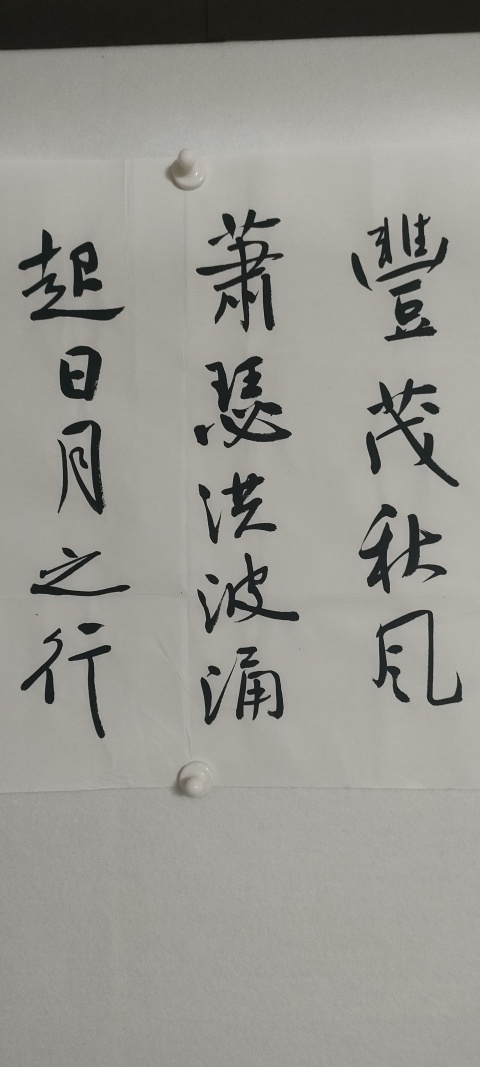 豐茂秋风
蕭瑟洪波涌
起日月之行